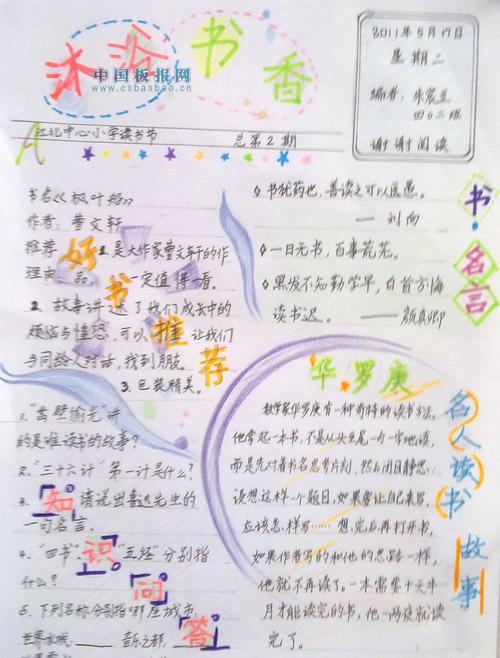 沐浴书香
中国板报网
www.cnbanbao.cn
2011年5月17日
星期二
编者：朱宸
四(二)班
谢谢阅读
江北中心小学读书节 总第2期
书名《枫叶船》
作者：曹文轩
推荐理由：
1. 是大作家曹文轩的作品，一定值得一看。
2. 故事讲述了我们成长中的
烦恼与憧憬，可以 让我们
与同龄人对话，找到朋友。
3. 包装精美。
好书推荐
◊ 书犹药也，善读之可以医愚。
——刘向
◊ 一日无书，百事荒芜。
◊ 黑发不知勤学早，白首方悔
读书迟。 ——颜真卿
书·名言
1. "凿壁偷光"讲
的是谁读书的故事？
2. "三十六计"第一计是什么？
3. 请说出鲁迅先生的
一句名言。
4. "四书""五经"分别指
什么？
5. 下列名称分别指哪座城市
世界水城：____ 音乐之都：____
知识问答
华罗庚
数学家华罗庚有一种奇特的读书方法。
他拿起一本书，不是从头至尾一句一字地读，
而是先对着书名思考片刻，然后闭目静思：
设想这样一个题目，如果要让自己来写，
应该怎样写……想完后再打开书，
如果作者写的和他的思路一样，
他就不再读了。一本需要十天半
月才能读完的书，他一两夜就读
完了。
名人读书故事